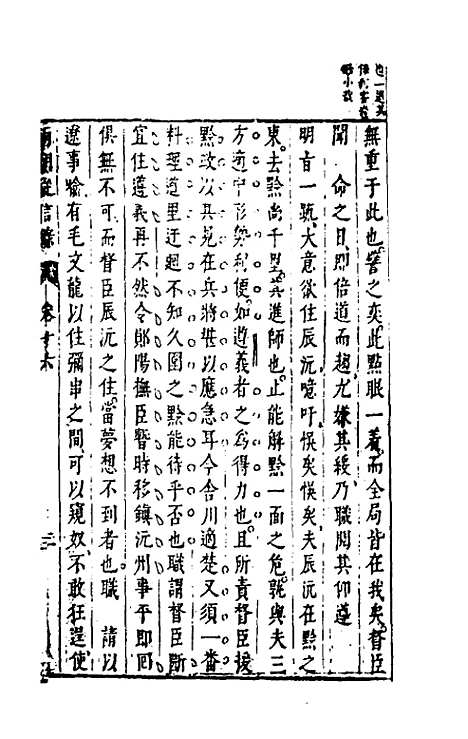 無重于此也譬之奕此點眼一着而全局皆在我矣督臣
聞　命之日即倍道而趨尤嫌其緩乃職閱其仰遵
明旨一疏大意欲住辰沅噫吁悞矣悞矣夫辰沅在黔之
東去黔尚千里其進師也止能解黔一面之危孰與夫三
方適中形勢利便如遵義者之為得力也且所責督臣援
黔政以其見在兵將堪以應急耳今舍川適楚又須一番
料理道里迂廻不知久圍之黔能待乎否也職謂督臣斷
宜住遵義再不然令鄖陽撫臣暫時移鎮沅州事平即回
俱無不可而督臣辰沅之住當夢想不到者也職　請以
遼事喻有毛文龍以住彌串之間可以窺奴不敢狂逞使
兩朝從信錄　卷十六